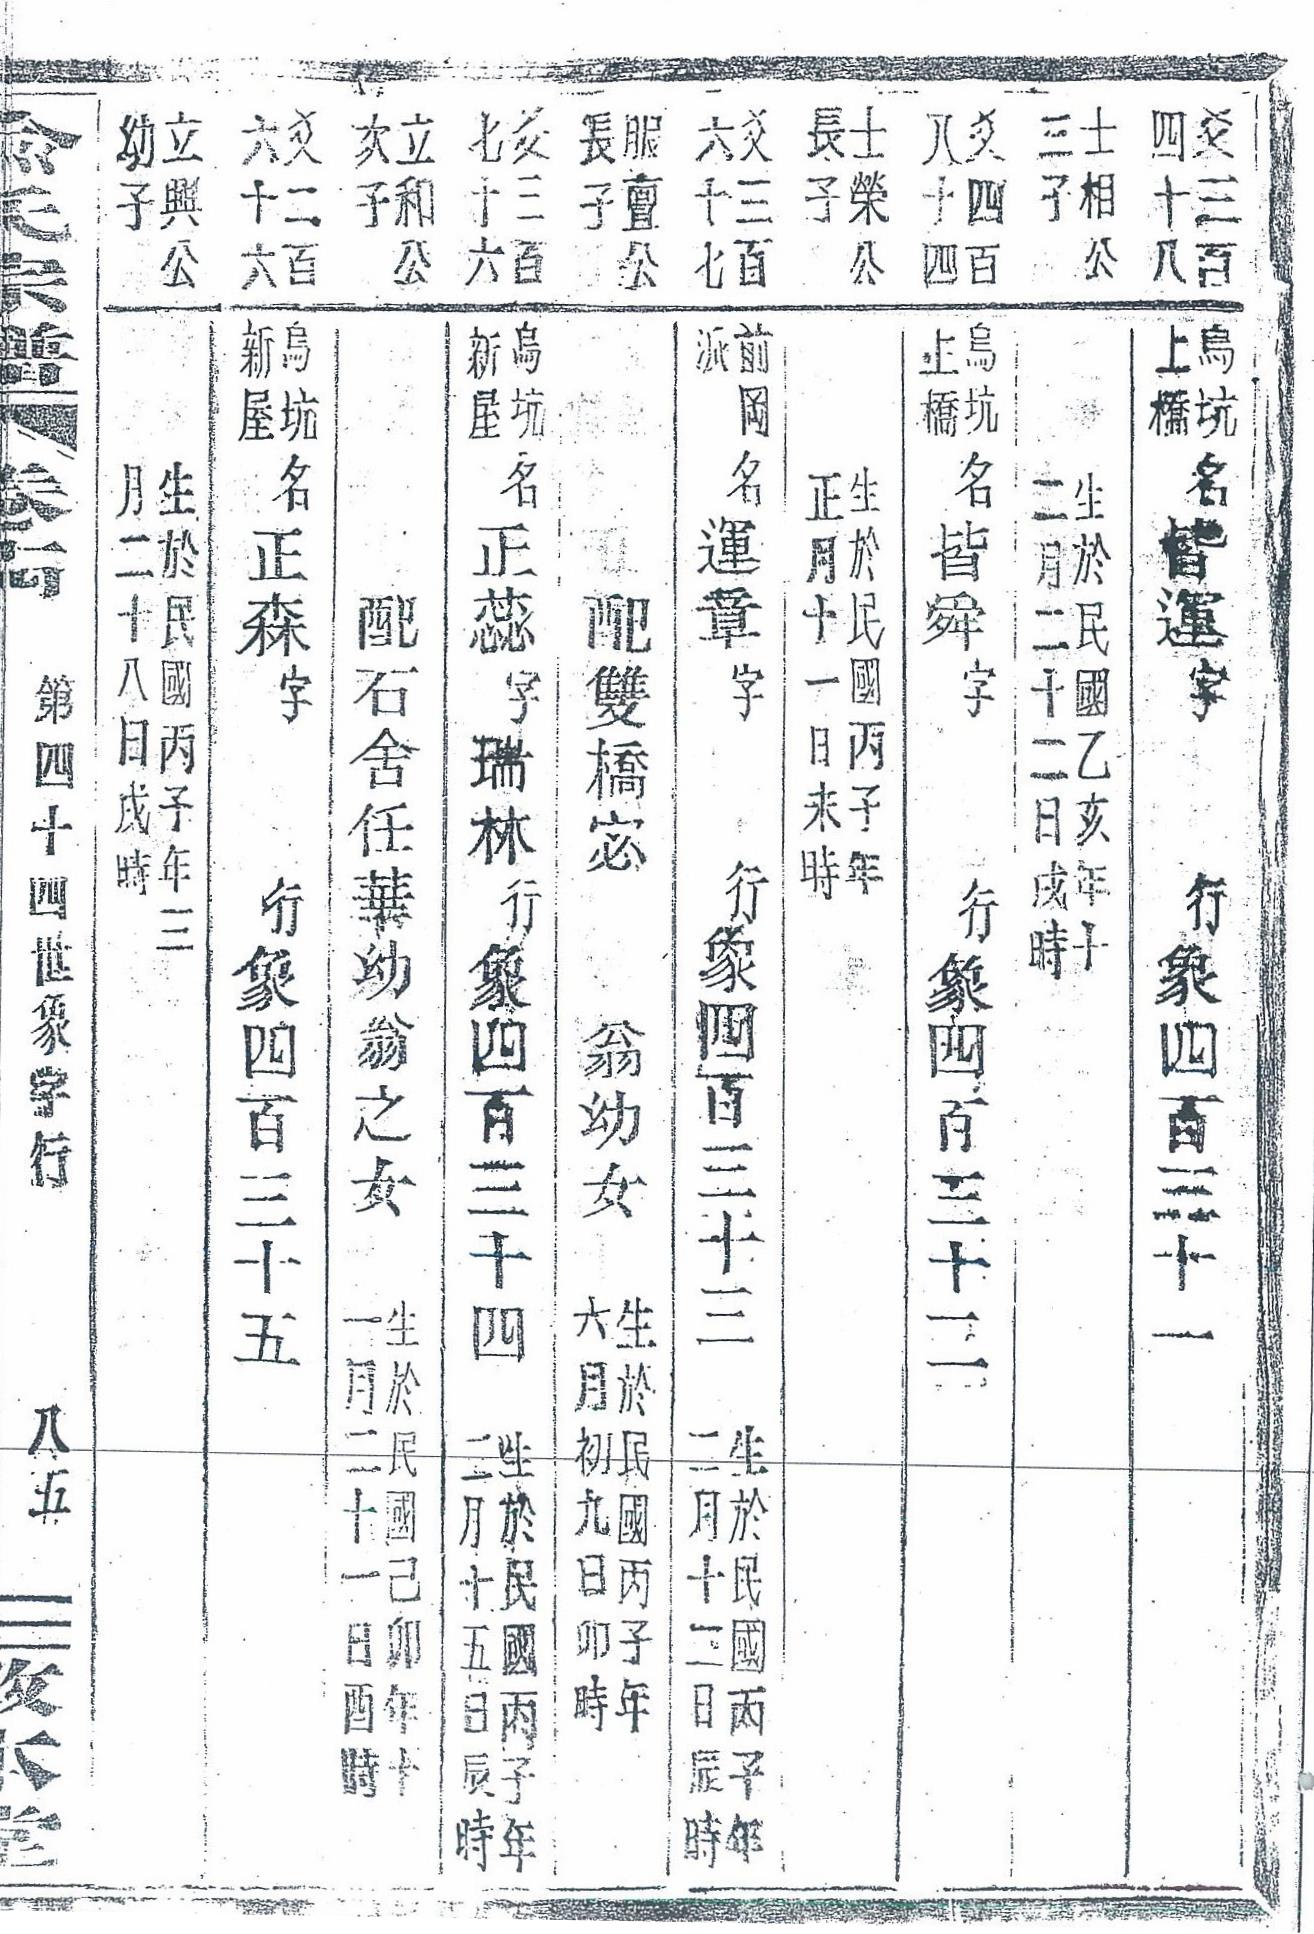 爻三百
四十八
烏坑
上橋
名皆運字
行象四百三十一
士相公
三子
生於民國乙亥年十
二月二十二日戌時
爻四百
八十四
烏坑
上橋
名皆舜字
行象四百三十二
士榮公
長子
生於民國丙子年
正月十一日未時
爻三百
六十七
前岡
派
名運章字
行象四百三十三
生於民國丙子年
二月十二日辰時
服亶公
長子
配雙橋宓
翁幼女
生於民國丙子年
六月初九日卯時
爻三百
七十六
烏坑
新屋
名正蕊字瑞林行象四百三十四
生於民國丙子年
二月十五日辰時
立和公
次子
配石舍任華幼翁之女
生於民國己卯年十
一月二十一日酉時
爻二百
六十六
烏坑
新屋
名正森字
行象四百三十五
立興公
幼子
生於民國丙子年三
月二十八日戌時
氏宗譜
卷
第四十四世象字行
八五